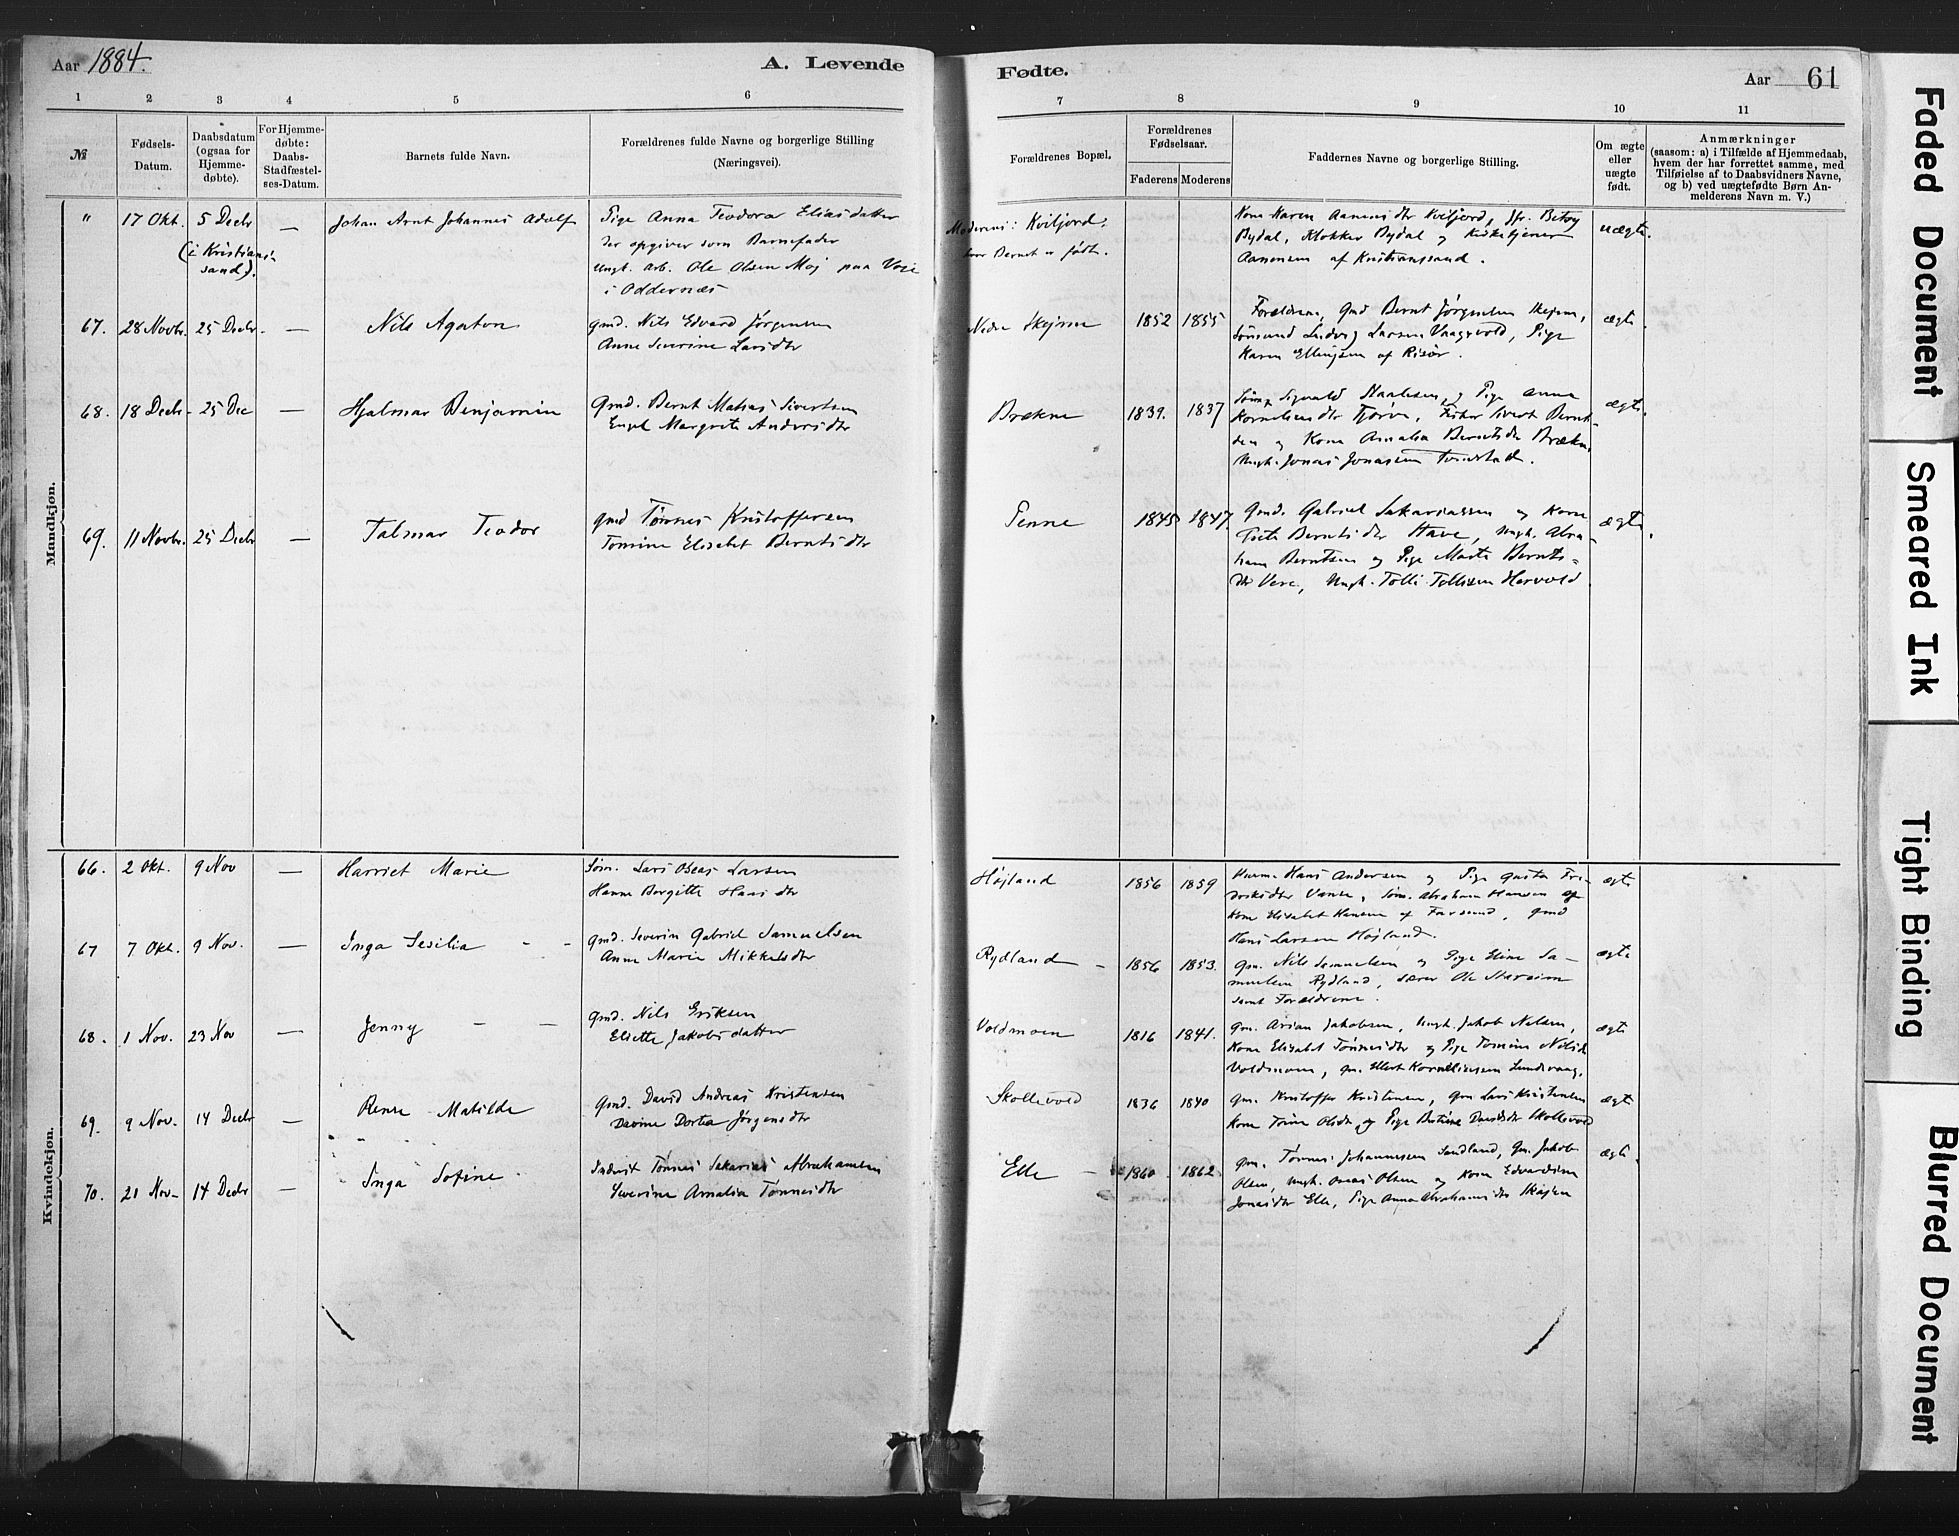 Aar 1884.
A. Levende
Fødte.
Aar 61
1 2 3 4 5 6 7 8 9 10 11
№
Fødsels-
Datum.
Daabsdatum
(ogsaa for
Hjemme-
døbte).
For Hjemme-
døbte:
Daabs-
Stadfæstel-
ses-Datum.
Barnets fulde Navn.
Forældrenes fulde Navne og borgerlige Stilling
(Næringsvei).
Forældrenes Bopæl.
Forældrenes
Fødselsaar.
Faderens Moderens
Faddernes Navne og borgerlige Stilling.
Om ægte
eller
uægte
født.
Anmærkninger
(saasom: a) i Tilfælde af Hjemmedaab,
hvem der har forrettet samme, med
Tilføielse af to Daabsvidners Navne,
og b) ved uægtefødte Børn An-
melderens Navn m. V.)
Mandkjøn.
" 17 Okt. 5 Decbr
(i Kristians-
sand).
—
Johan Arnt Johannes Adolf
Pige Anna Teodora Eliasdatter
der opgiver som Barnefader
Ungk. arb. Ole Olsen Moj paa Voje
i Oddernæs
Moderens: Kviljord,
hvor Barnet er født.
Kone Karen Aanensdtr Kviljord, Jfr. Betsy
Bydal, Klokker Bydal og Kirketjener
Aanensen af Kristianssand.
uægte.
67. 28 Novbr. 25 Decbr. —
Nils Agaton
Gmd. Nils Edvard Jørgensen
Anne Severine Larsdtr
Nedre Skejme
1852 1855
Forældrene, Gmd Bernt Jørgensen Skejme,
Sømand Ludvig Larsen Vaagsvold, Pige
Karen Ellingsen af Risør.
ægte.
68. 18 Decbr. 25 Dec —
Hjalmar Benjamin
Gmd. Bernt Matias Sivertsen
Engel Margrete Andersdtr
Brækne
1839. 1837
Sømd Sigvald Staalesen og Pige Anna
Korneliusdtr Tjørve, Fisker Sivert Bernt-
sen og Kone Amalia Berntsdtr Brækne,
Ungk. Jonas Jonassen
ægte.
69. 11 Novbr. 25 Decbr —
Talmar Teodor
Gmd Tønnes Kristoffersen
Tomine Elisabet Berntsdtr
Penne
1845 1847
Gmd. Gabriel Sakariassen og Kone
Berntsdtr Have, Ungk. Abra-
ham Berntsen og Pige Marte Bernts-
dtr Vere, Ungk. Tolli Tollisen Hervold
ægte.
Kvindekjøn.
66. 2 Okt. 9 Nov —
Harriet Marie
Søm. Lars Oseas Larsen
Hanne Borgitte Hansdtr
Højland
1856 1859
Hans Andersen og Pige Gusta Fre-
driksdtr Vanse, Søm. Abraham Hansen og
Kone Elisabet Hansen af Farsund, Gmd
Hans Larsen Højland.
ægte
67 7 Okt. 9 Nov. —
Inga Sesilia - -
Gmd. Severin Gabriel Samuelsen
Anne Marie Mikkelsdtr
Rydland -
1856 1853.
Gm. Nils Samuelsen og Pige Eline Sa-
muelsen Rydland, Lærer Ole
samt Forældrene.
ægte
68. 1 Nov. 23 Nov —
Jenny - -
Gmd. Nils Eriksen
Elsette Jakobsdatter
Voldmoen
1816 1841.
Gm. Arian Jakobsen, Ungk. Jakob Nilsen,
Kone Elisabet Tønnesdtr og Pige Tomine Nilsdr
Voldmoen, Gm. Ellert Korneliussen Lundevaag.
ægte
69. 9 Nov. 14 Decbr —
Rense Matilde
Gmd. David Andreas Kristensen
Davine Dortea Jørgensdtr
Skollevold
1836 1840
Gm. Kristoffer Kristensen, Gm Lars Kristensen
Kone Tomine Olsdtr og Pige Davidsdtr Skollevold
ægte
70. 21 Nov- 14 Decbr —
Inga Sofine
Inderst Tønnes Sakarias Abrahamsen
Severine Amalia Tønnesdtr
Elle -
1860. 1862
Gm. Tønnes Johannesen Sandland, Gm. Jakob
Olsen, Ungk. Oseas Olsen og Kone Edvardine
Jonasdtr Elle, Pige Anna Abrahamsdtr Skejme
ægte.
Faded Document
Smeared Ink
Tight Binding
Blurred Document